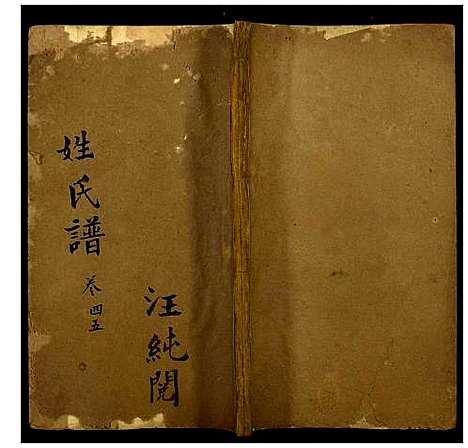 姓氏譜
卷四五
汪純閱